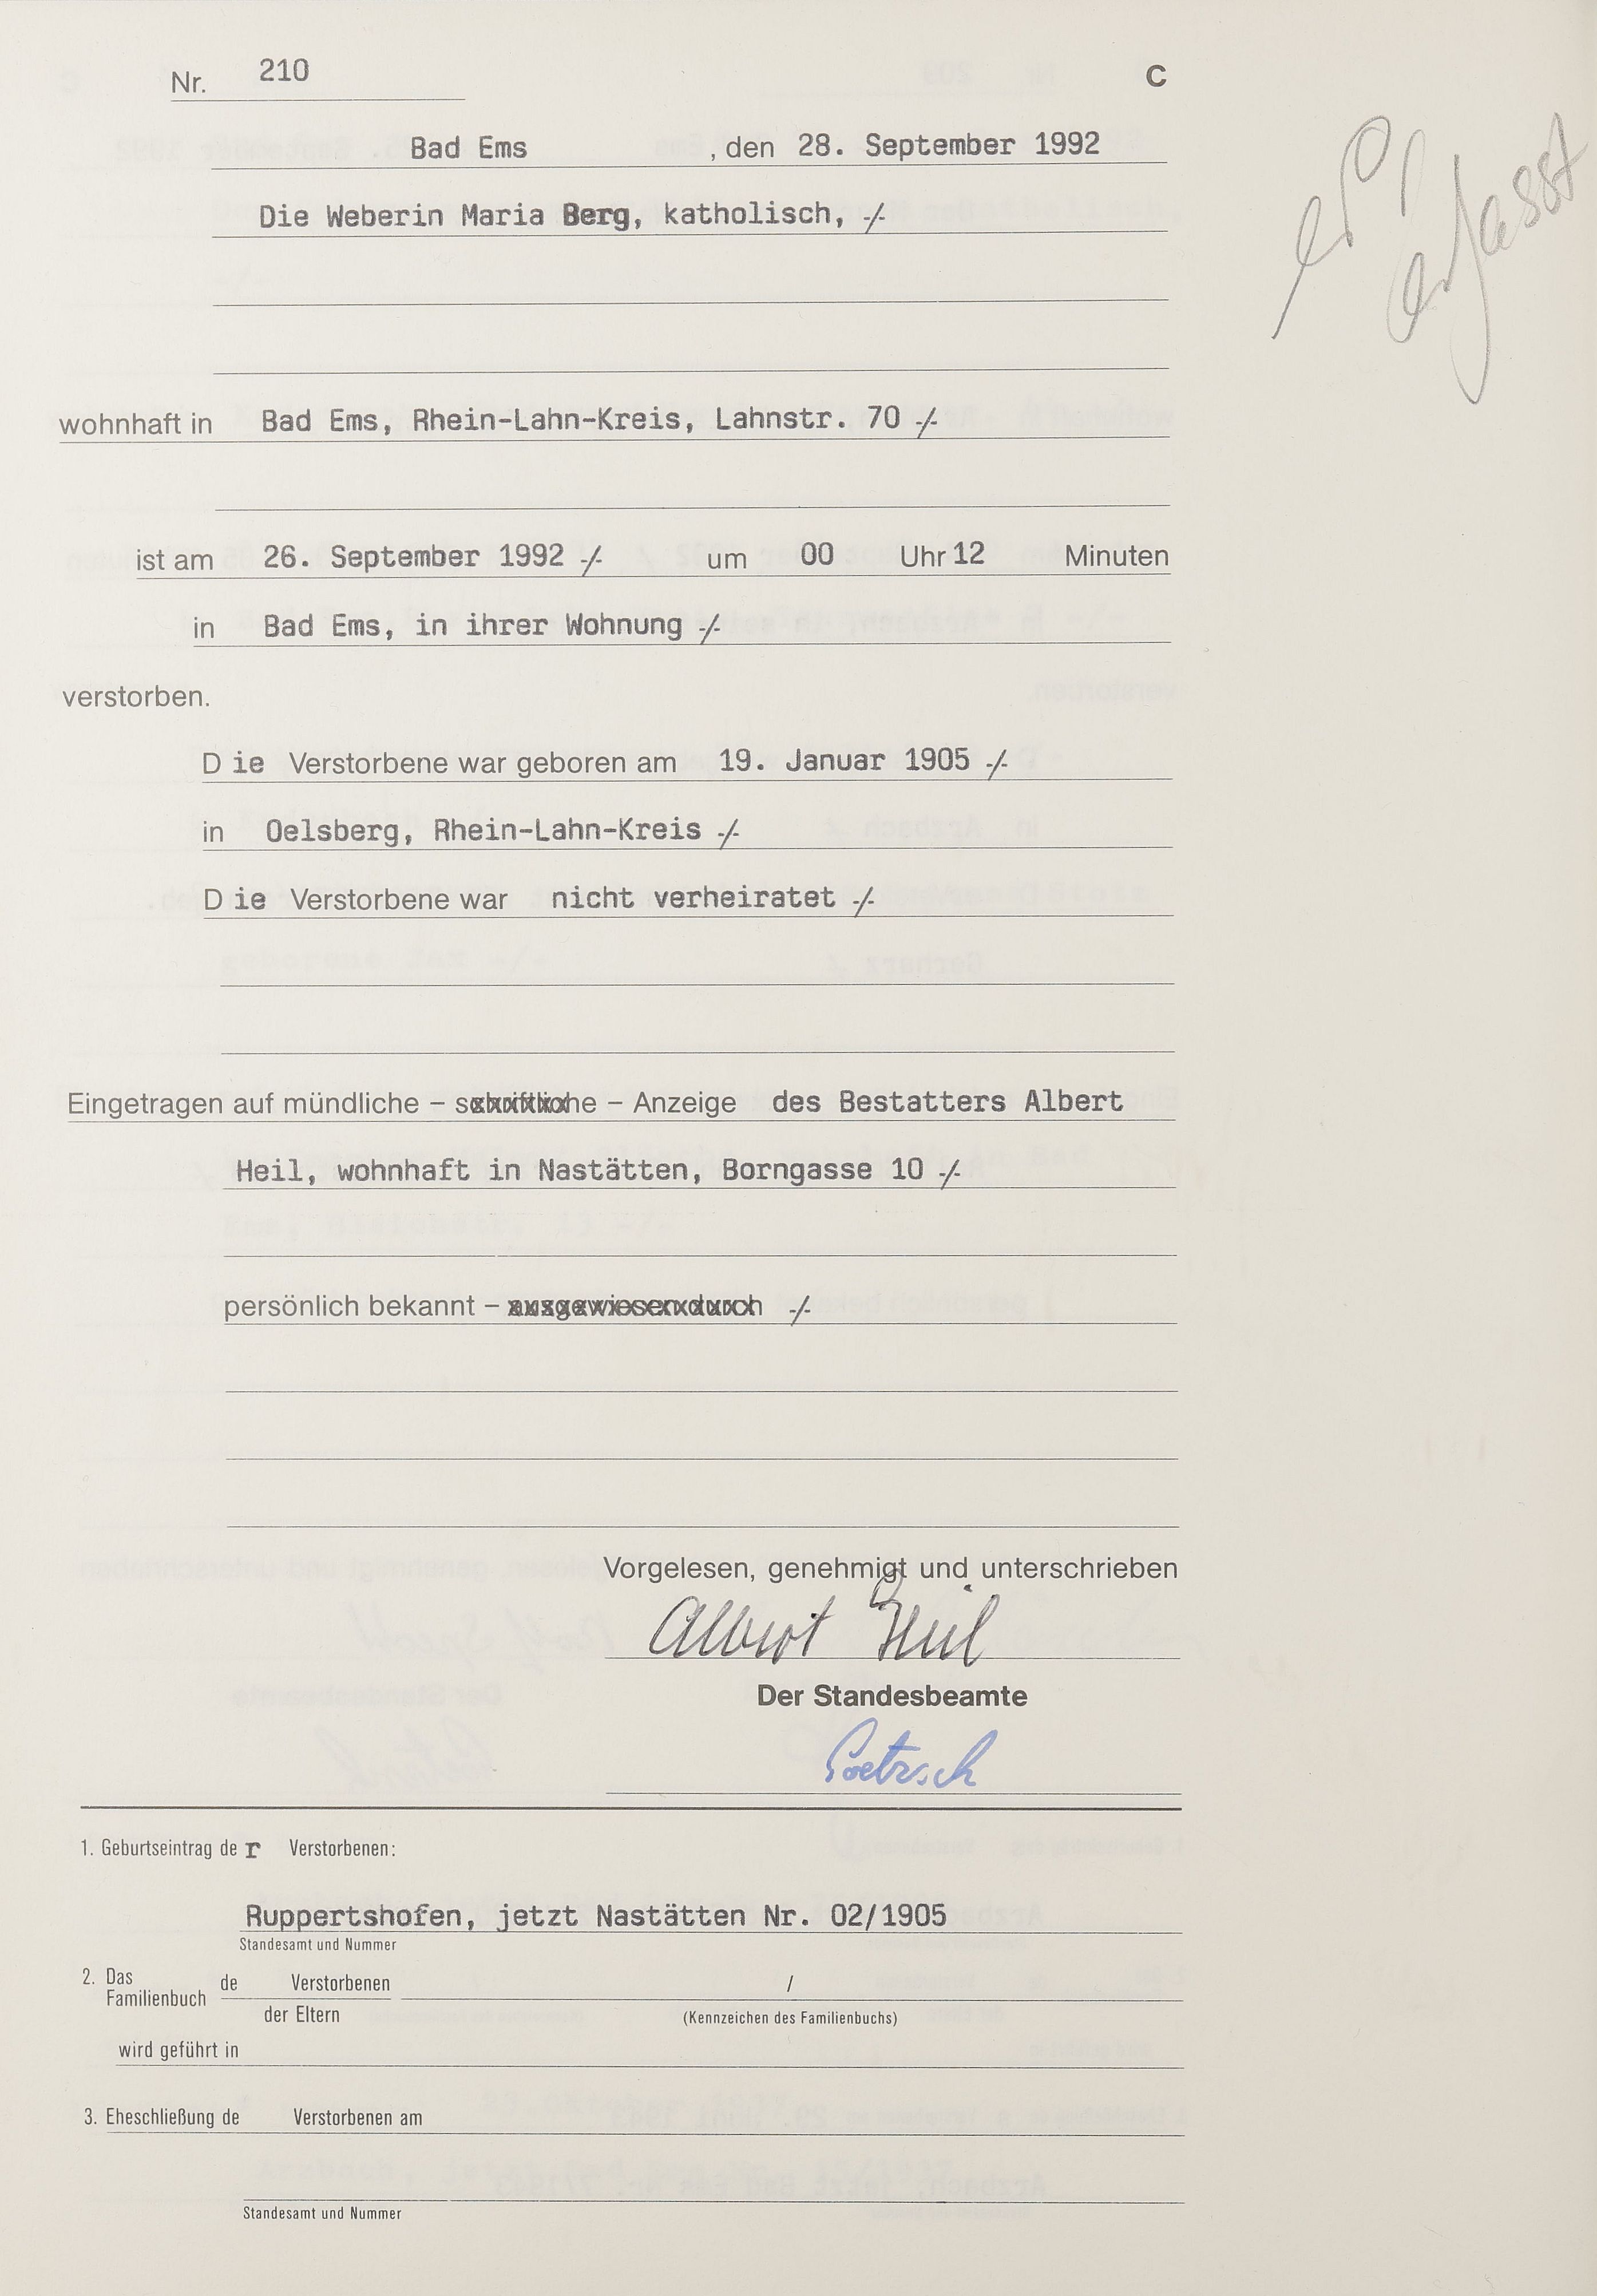 Nr. 210 C
Bad Ems , den 28. September 1992
Die Weberin Maria Berg, katholisch, -/-
wohnhaft in Bad Ems, Rhein-Lahn-Kreis, Lahnstr. 70 -/-
ist am 26. September 1992 -/- um 00 Uhr 12 Minuten
in Bad Ems, in ihrer Wohnung -/-
verstorben.
Die Verstorbene war geboren am 19. Januar 1905 -/-
in Oelsberg, Rhein-Lahn-Kreis -/-
Die Verstorbene war nicht verheiratet -/-
Eingetragen auf mündliche – schriftliche – Anzeige des Bestatters Albert
Heil, wohnhaft in Nastätten, Borngasse 10 -/-
persönlich bekannt – ausgewiesen durch -/-
Vorgelesen, genehmigt und unterschrieben
Albert Heil
Der Standesbeamte
1. Geburtseintrag der Verstorbenen:
Ruppertshofen, jetzt Nastätten Nr. 02/1905
Standesamt und Nummer
2. Das Familienbuch de Verstorbenen /
der Eltern (Kennzeichen des Familienbuchs)
wird geführt in
3. Eheschließung de Verstorbenen am
Standesamt und Nummer
erfasst